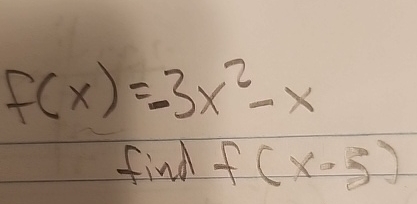 f(x) = -3x² - x
find f(x-5)